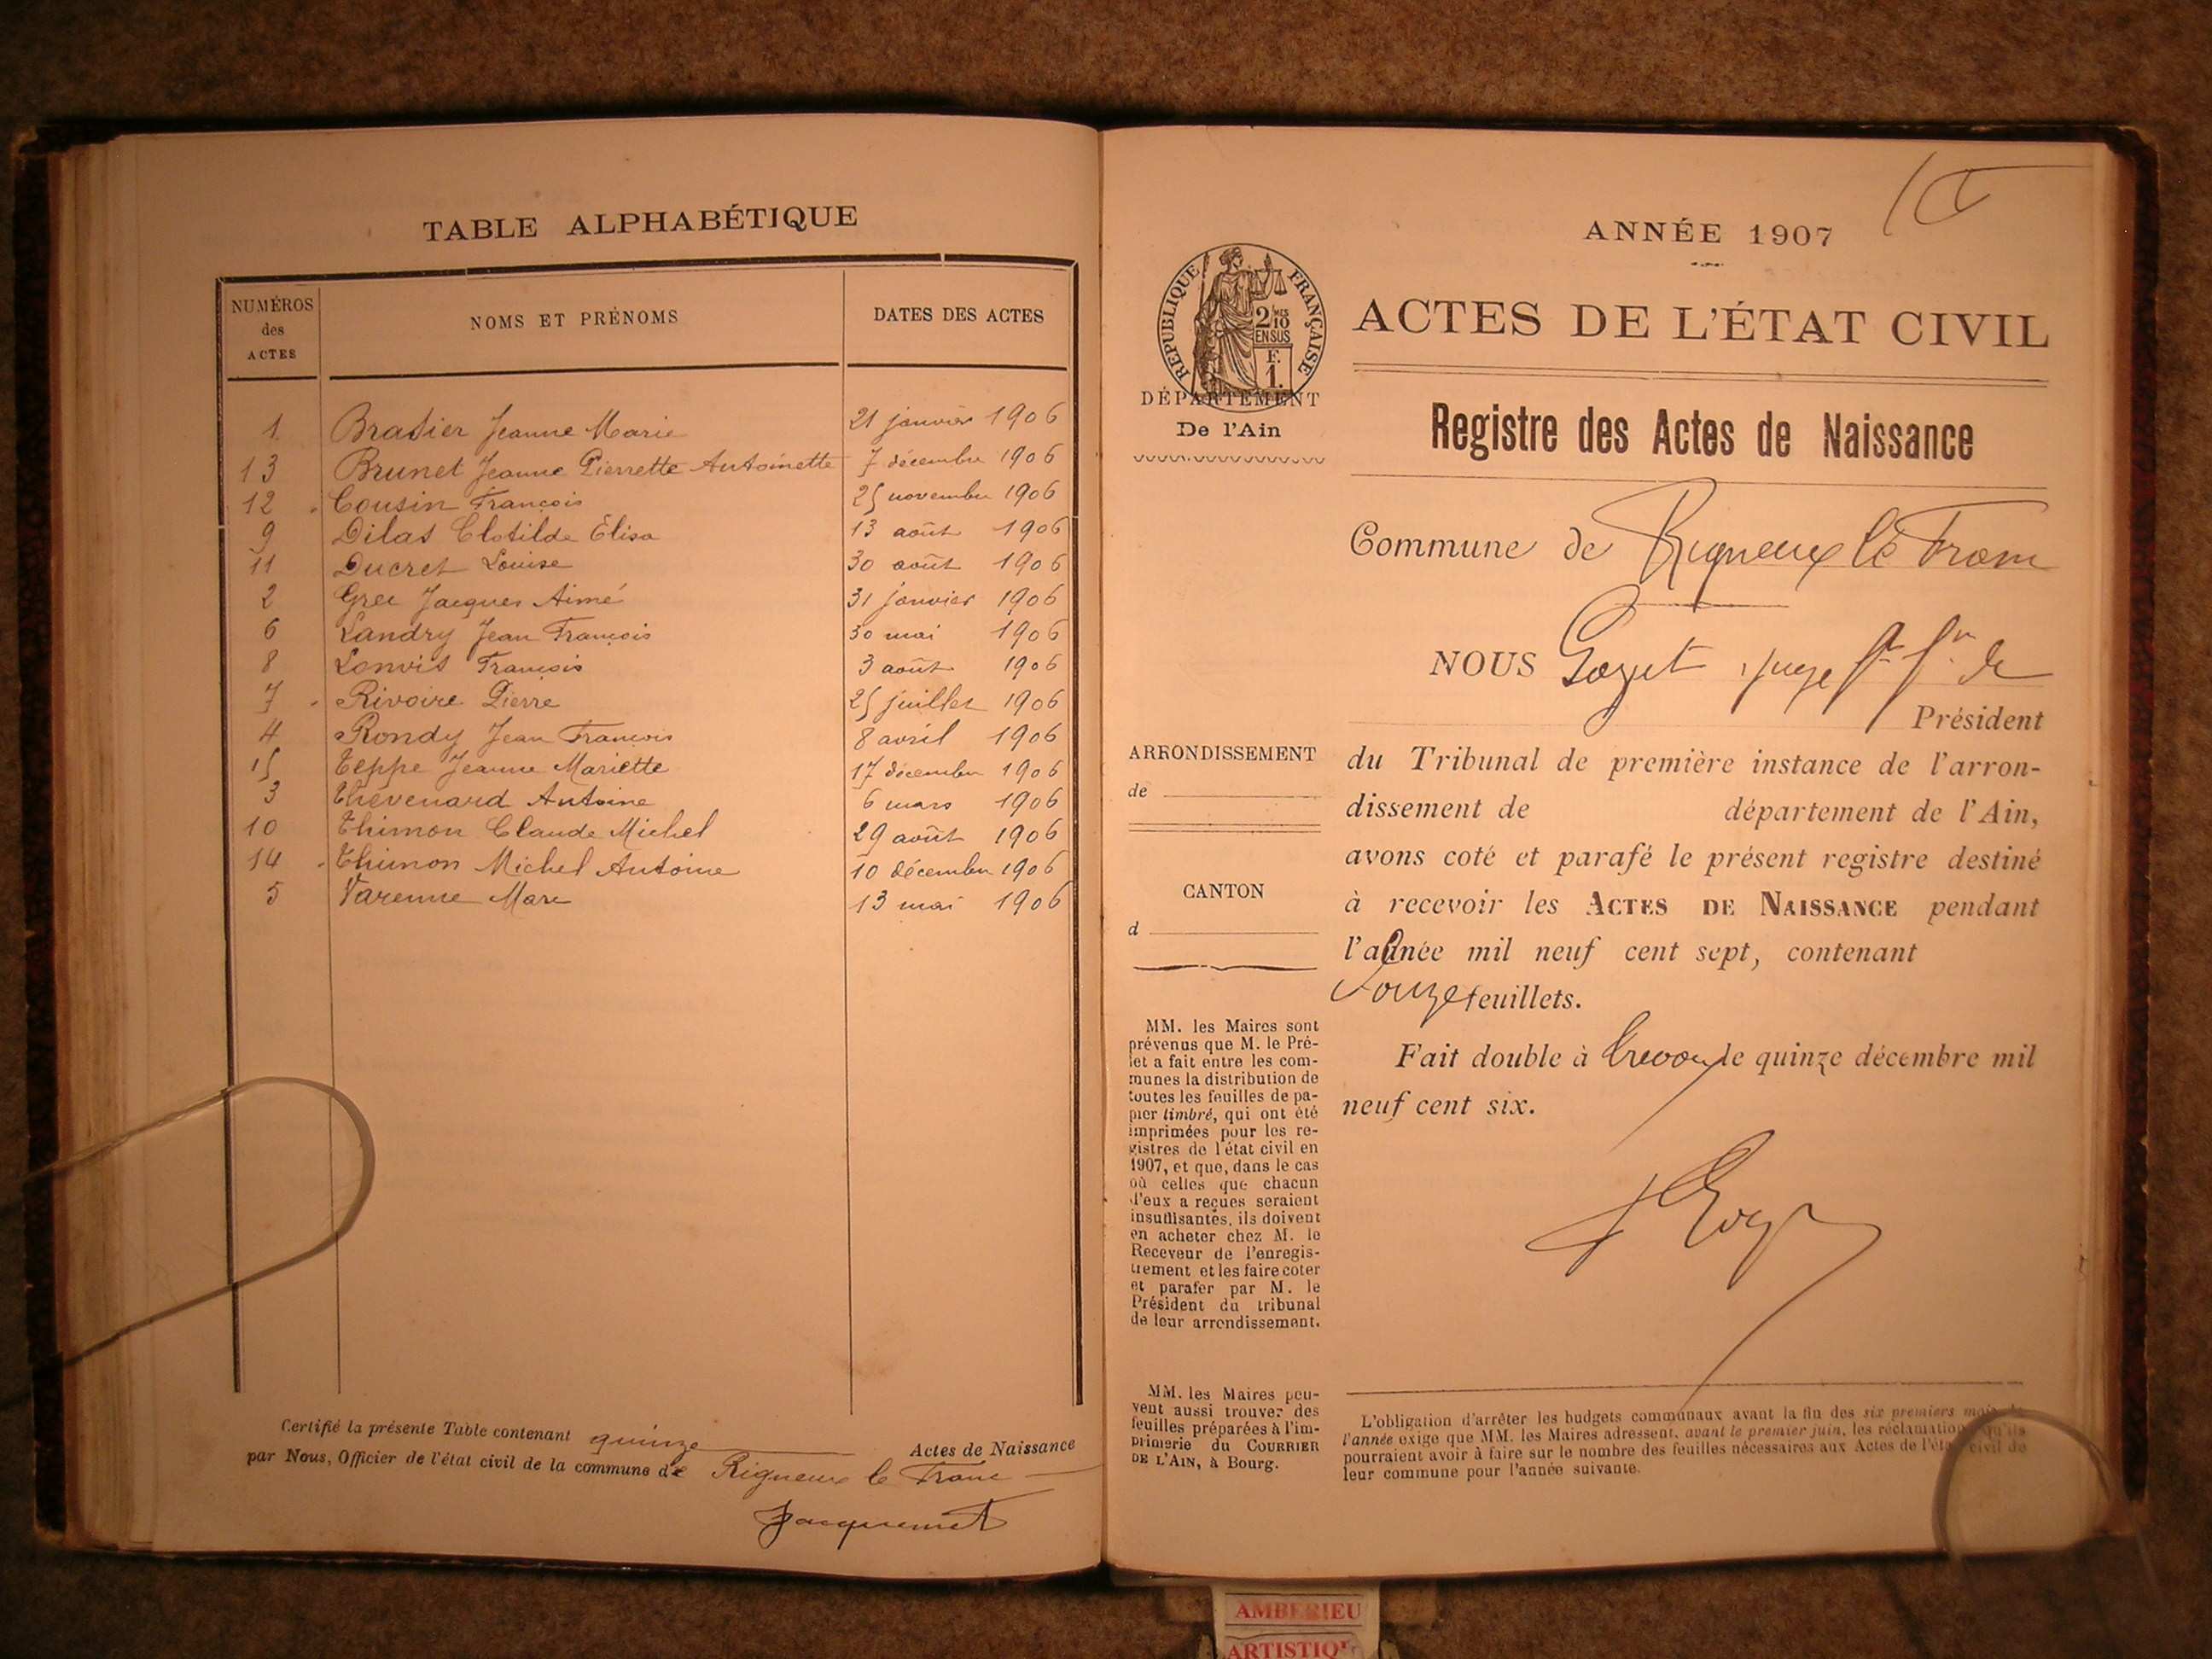 TABLE ALPHABÉTIQUE
NUMÉROS des ACTES
NOMS ET PRÉNOMS
DATES DES ACTES
1 Bradier Jeanne Marie 21 janvier 1906
13 Brunet Jeanne Pierrette Antoinette 7 décembre 1906
12 Cousin François 25 novembre 1906
9 Dilas Clotilde Élisa 13 août 1906
11 Ducret Louise 30 août 1906
2 Grec Jacques Aimé 31 janvier 1906
6 Landry Jean François 30 mai 1906
8 Lonvis François 3 août 1906
7 Rivoire Pierre 25 juillet 1906
4 Rondy Jean François 8 avril 1906
15 Teppe Jeanne Mariette 17 décembre 1906
3 Thévenard Antoine 6 mars 1906
10 Thimon Claude Michel 29 août 1906
14 Thimon Michel Antoine 10 décembre 1906
5 Varenne Marc 13 mai 1906
Certifié la présente Table contenant quinze Actes de Naissance
par Nous, Officier de l'état civil de la commune de Rigneux le Franc
Jacquemet
ANNÉE 1907
RÉPUBLIQUE FRANÇAISE
2/10 MES
EN SUS
F.
1.
ACTES DE L'ÉTAT CIVIL
DÉPARTEMENT
De l'Ain
Registre des Actes de Naissance
Commune de Rigneux le Franc
NOUS juge
Président
ARRONDISSEMENT
de
du Tribunal de première instance de l'arron-
dissement de département de l'Ain,
avons coté et parafé le présent registre destiné
à recevoir les ACTES DE NAISSANCE pendant
l'année mil neuf cent sept, contenant
douze feuillets.
CANTON
d
Fait double à Trévoux le quinze décembre mil
neuf cent six.
MM. les Maires sont
prévenus que M. le Pré-
fet a fait entre les com-
munes la distribution de
toutes les feuilles de pa-
pier timbré, qui ont été
imprimées pour les re-
gistres de l'état civil en
1907, et que, dans le cas
où celles que chacun
d'eux a reçues seraient
insuffisantes, ils doivent
en acheter chez M. le
Receveur de l'enregis-
trement et les faire coter
et parafer par M. le
Président du tribunal
de leur arrondissement.
MM. les Maires peu-
vent aussi trouver des
feuilles préparées à l'im-
primerie du COURRIER
DE L'AIN, à Bourg.
L'obligation d'arrêter les budgets communaux avant la fin des six premiers mois de
l'année exige que MM. les Maires adressent, avant le premier juin, les réclamations qu'ils
pourraient avoir à faire sur le nombre des feuilles nécessaires aux Actes de l'état civil de
leur commune pour l'année suivante.
AMBERIEU
ARTISTIQU